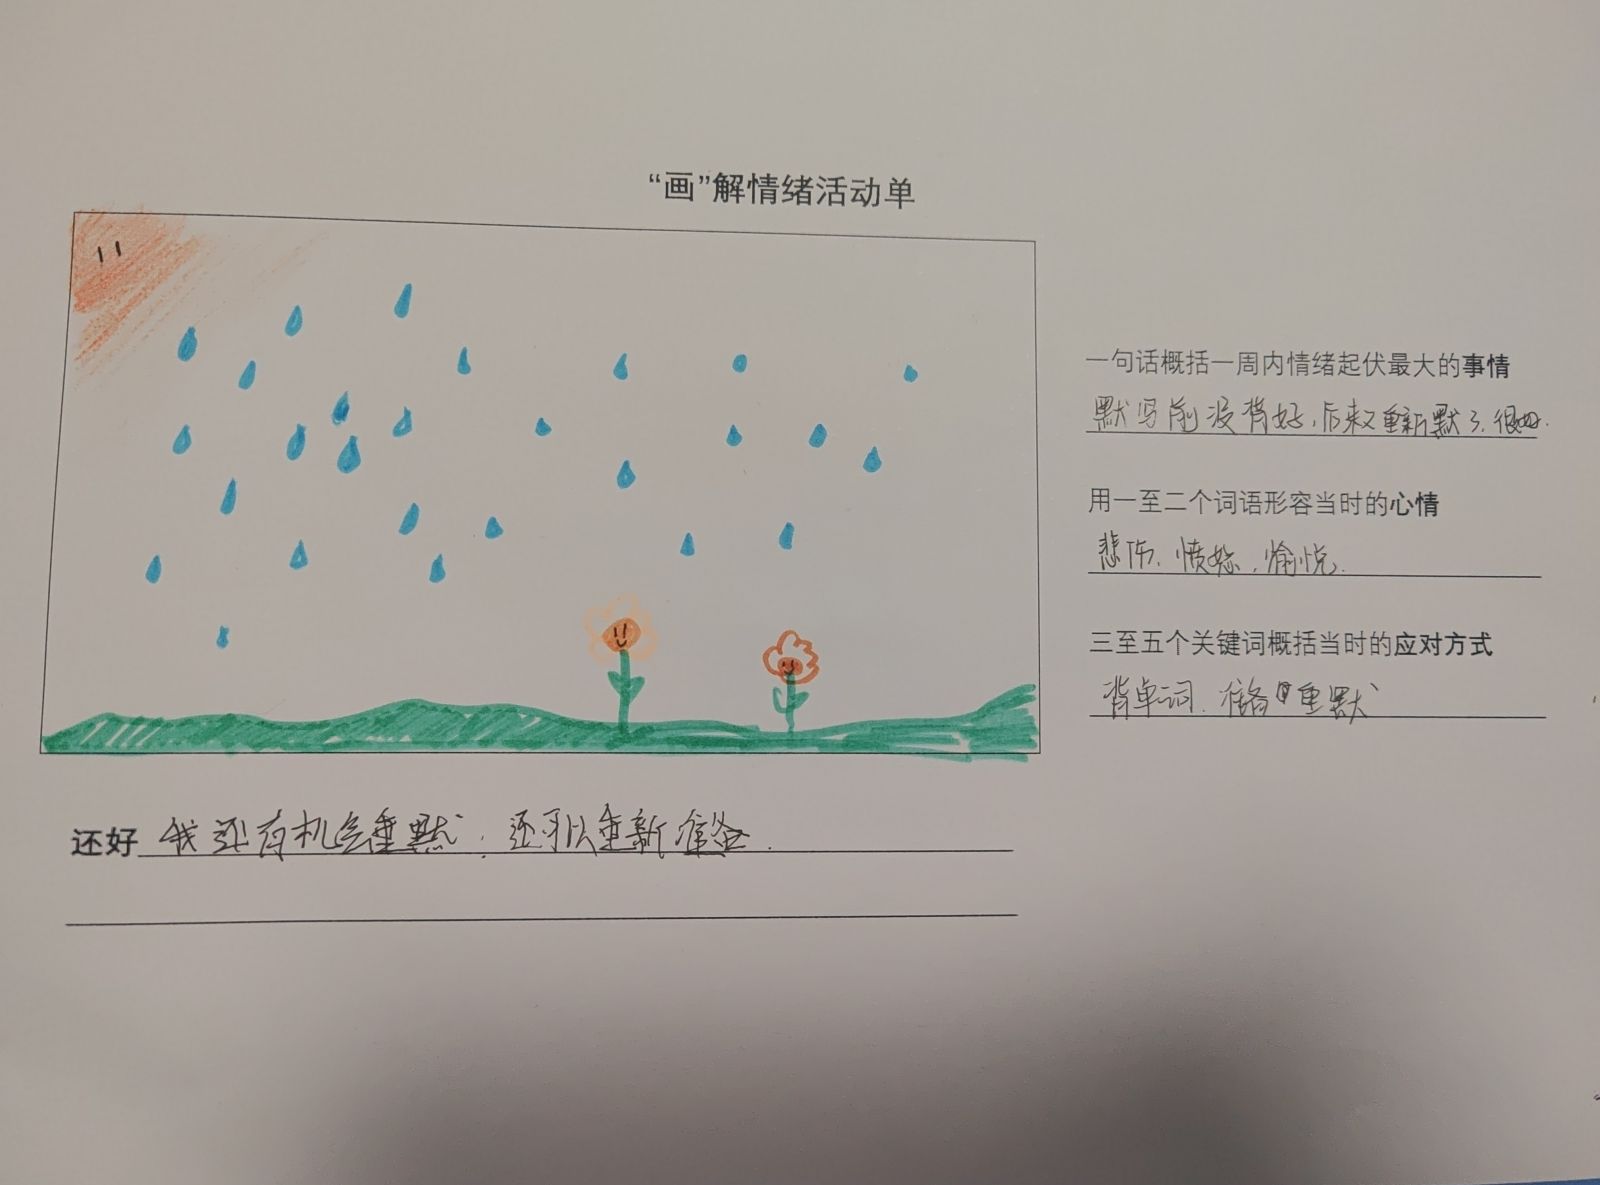 “画”解情绪活动单
一句话概括一周内情绪起伏最大的事情
默写前没背好,后来又重新默了,很好.
用一至二个词语形容当时的心情
悲伤、愤怒、愉悦.
三至五个关键词概括当时的应对方式
背单词、准备重默
还好 我还有机会重默,还可以重新准备.